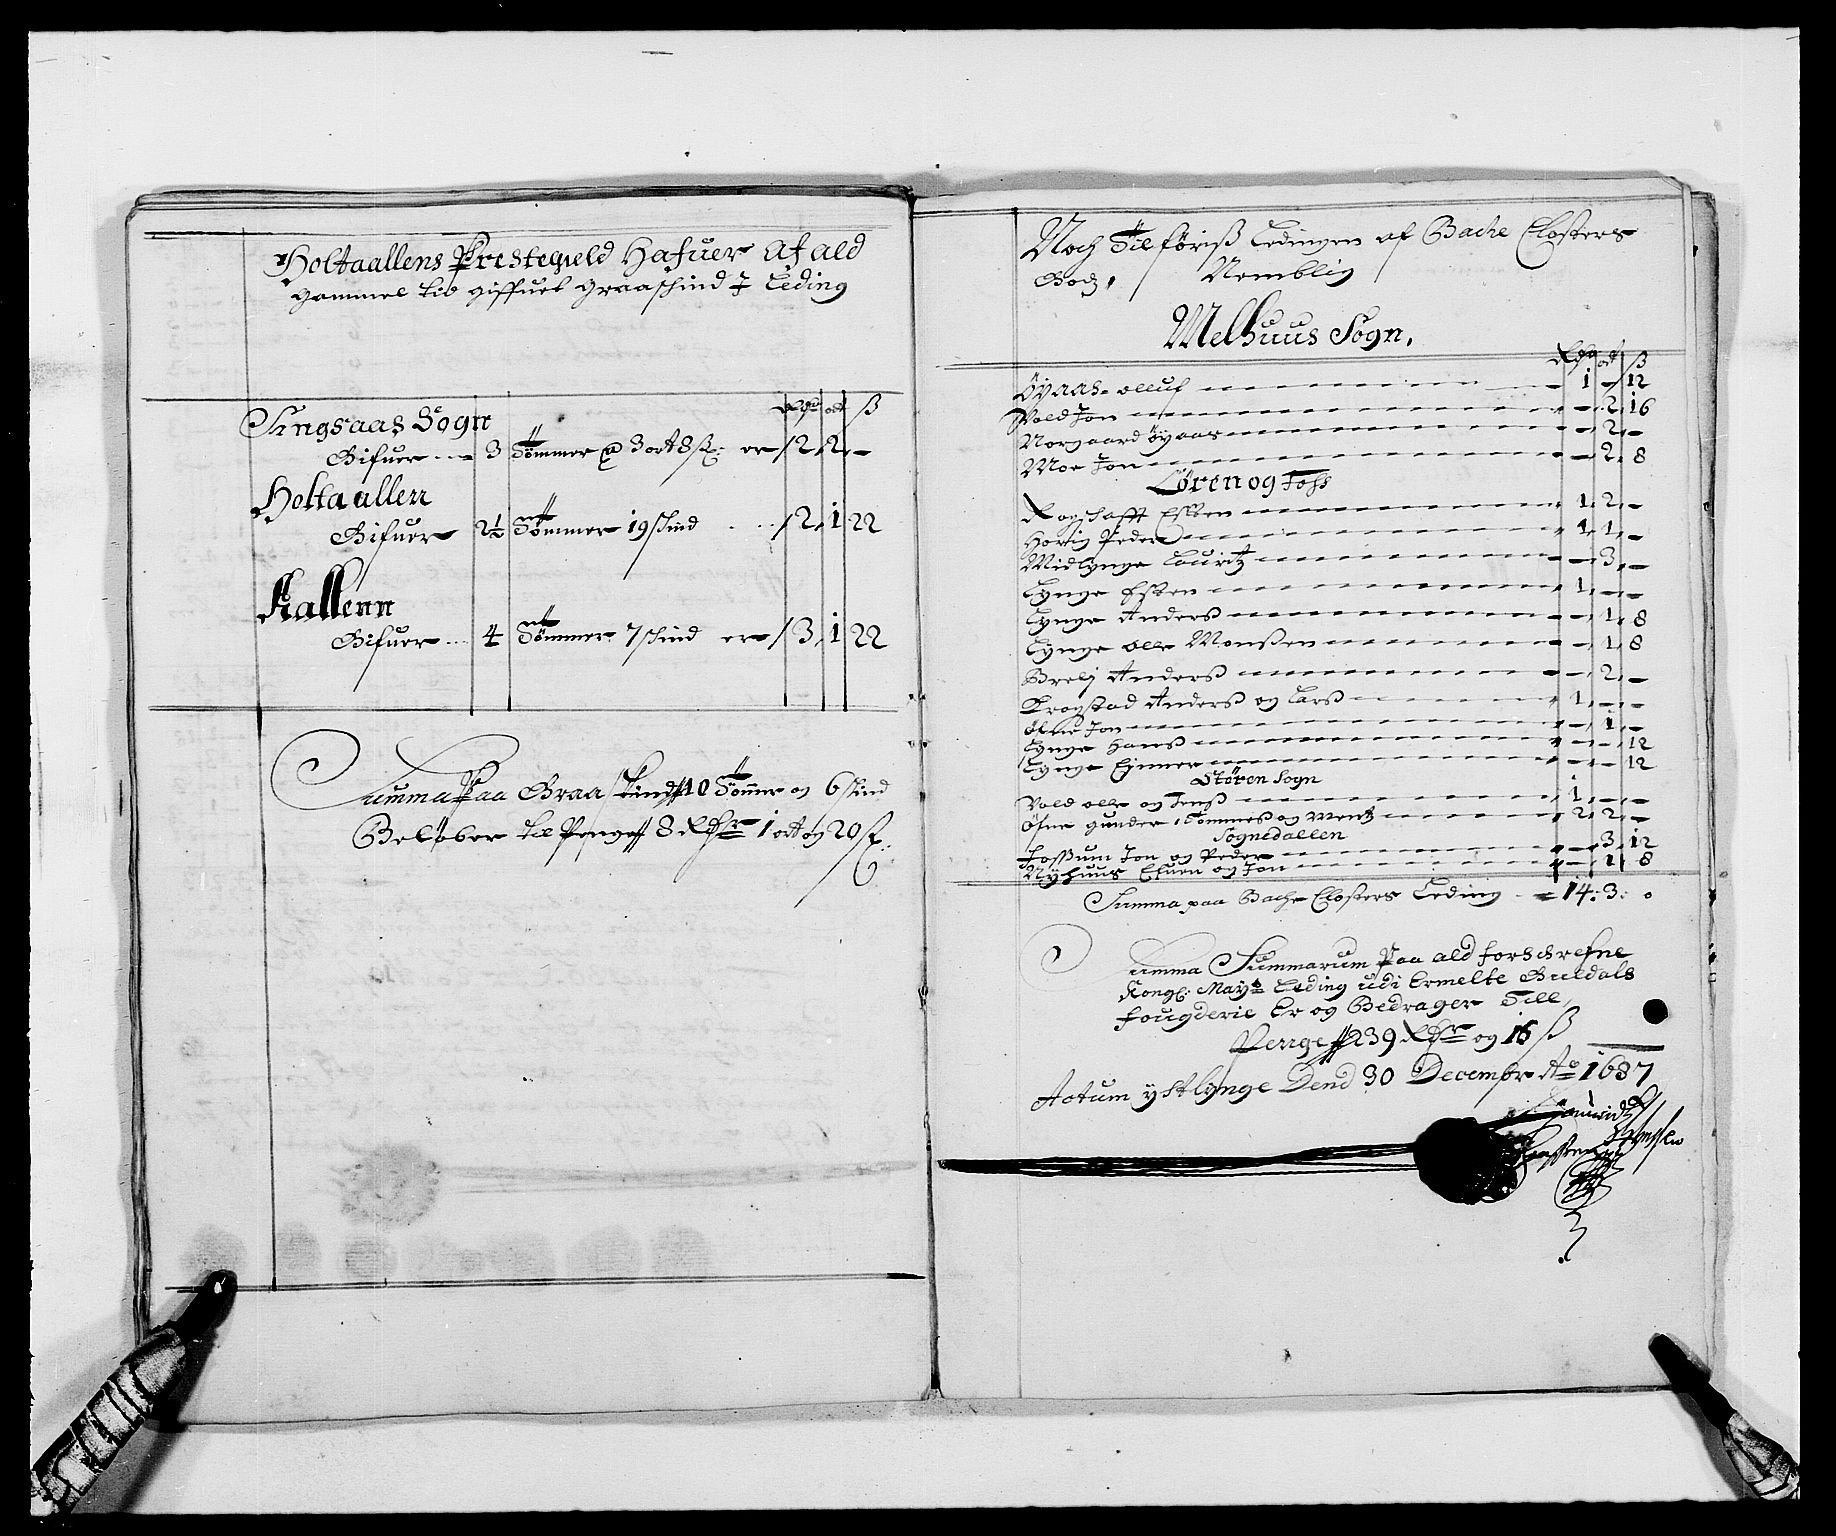 Holtaallens Prestegield Hafuer Af ald
gammel tid giffuet graaschind J Leding
Rdr ort ß
Singsaas Sogn
Gifuer 3 Tømmer @ 3 ort 8 ß er 2 2 -
Holtaallen
Gifuer 2½ Tømmer 19 skind 2 1 22
Aallenn
Gifuer 4 Tømmer 7 skind er 3 1 22
Summa Paa Graaskind 10 Tømmer og 6 skind
Beløber til Penge 8 Rdr 1 ort og 20 ß
Noch Tilføriß Ledingen af Bache Closters
Godz, Nemblig
Melhuus Sogn.
Rdr ort ß
Øyaas oelluf 1 - 12
Vold Jon - 2 16
Norgaard Øyaas - 2 -
Moe Jon - 2 8
Løren og Foss
Rogstafft Esten 1 2 -
Horig Peder 1 1 -
Midlynge Lauritz - 3 -
Lynge Esten 1 - -
Lynge Anders - 1 8
Lynge olle Monßen - 1 8
Brelj Anderß - 2 -
Krogstad Anderß og Larß 1 - -
Øfne Jon - 1 -
Lynge Hanß - - 12
Lynge Ejnner - - 12
Støren Sogn
Vold olle og Jenß 1 - -
Øfne gunder, Tommes og Mentz 2 2 -
Sognedallen
Foßum Jon og Peder - 3 12
Nyhuus Efuen og Jon - 1 8
Summa paa Bache Closters Leding 14: 3: 0
Summa Summarum Paa ald forschrefne
Kongl: Mayts Leding udi Ermelte Guldals
fougderie Er og Bedrager Till
Penge 239 Rdr og 16 ß
Actum ystlynge Dend 30 Decembr Ao 1687